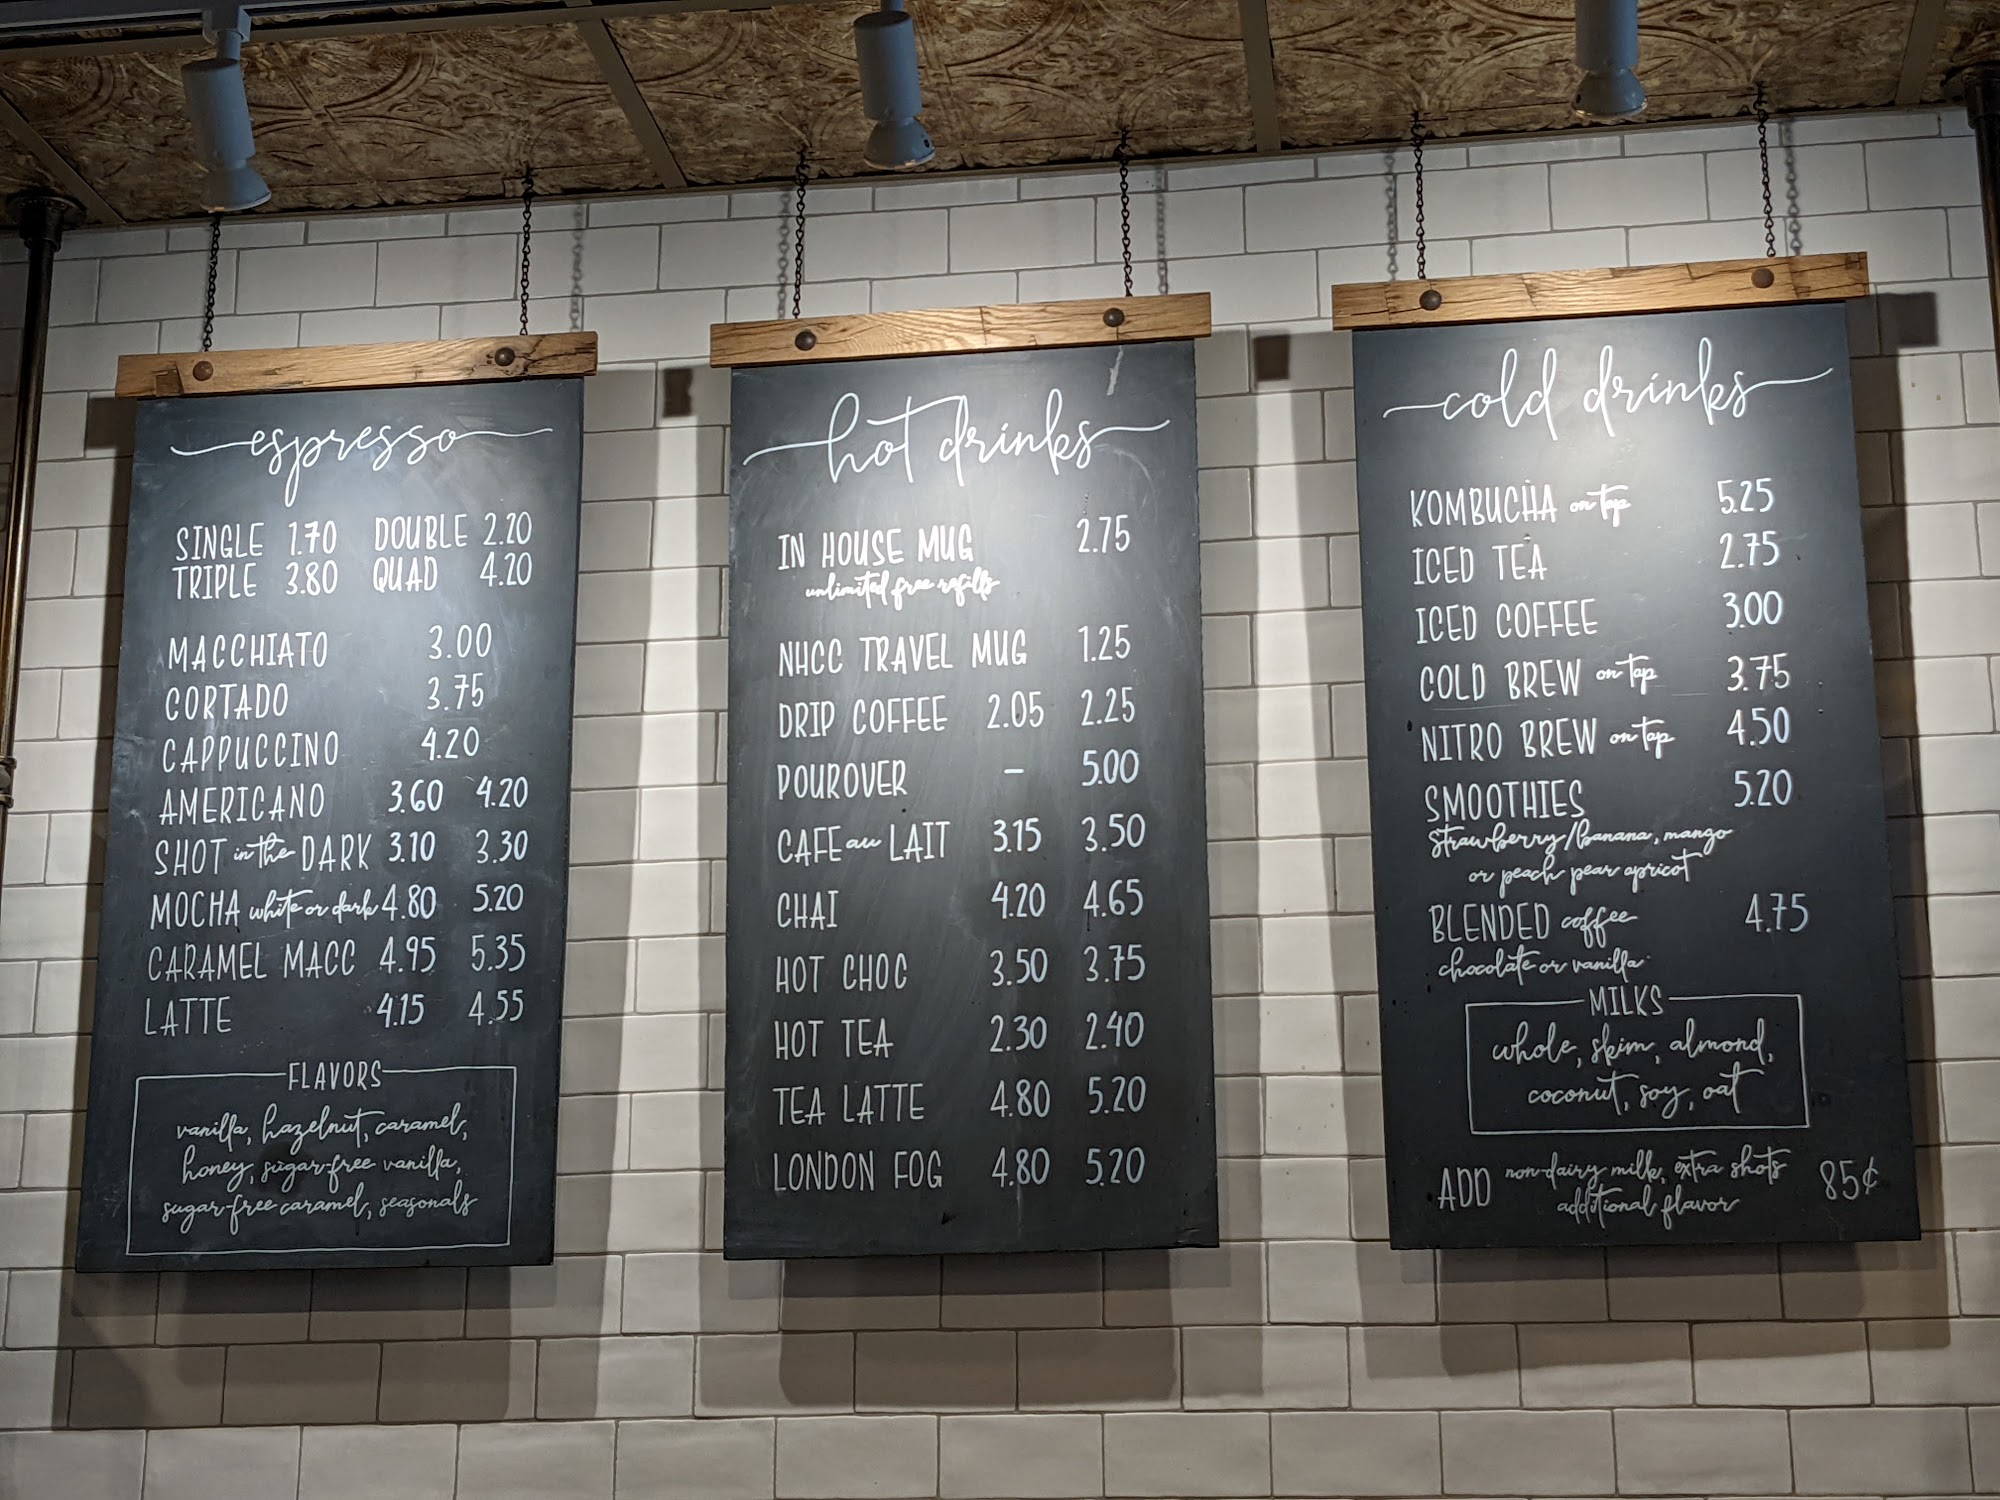 espresso
SINGLE 1.70 DOUBLE 2.20
TRIPLE 3.80 QUAD 4.20
MACCHIATO 3.00
CORTADO 3.75
CAPPUCCINO 4.20
AMERICANO 3.60 4.20
SHOT in the DARK 3.10 3.30
MOCHA white or dark 4.80 5.20
CARAMEL MACC 4.95 5.35
LATTE 4.15 4.55
FLAVORS
vanilla, hazelnut, caramel,
honey, sugar-free vanilla,
sugar-free caramel, seasonals
hot drinks
IN HOUSE MUG 2.75
unlimited free refills
NHCC TRAVEL MUG 1.25
DRIP COFFEE 2.05 2.25
POUROVER – 5.00
CAFE au LAIT 3.15 3.50
CHAI 4.20 4.65
HOT CHOC 3.50 3.75
HOT TEA 2.30 2.40
TEA LATTE 4.80 5.20
LONDON FOG 4.80 5.20
cold drinks
KOMBUCHA on tap 5.25
ICED TEA 2.75
ICED COFFEE 3.00
COLD BREW on tap 3.75
NITRO BREW on tap 4.50
SMOOTHIES 5.20
strawberry/banana, mango
or peach pear apricot
BLENDED coffee 4.75
chocolate or vanilla
MILKS
whole, skim, almond,
coconut, soy, oat
ADD non-dairy milk, extra shots 85¢
additional flavor